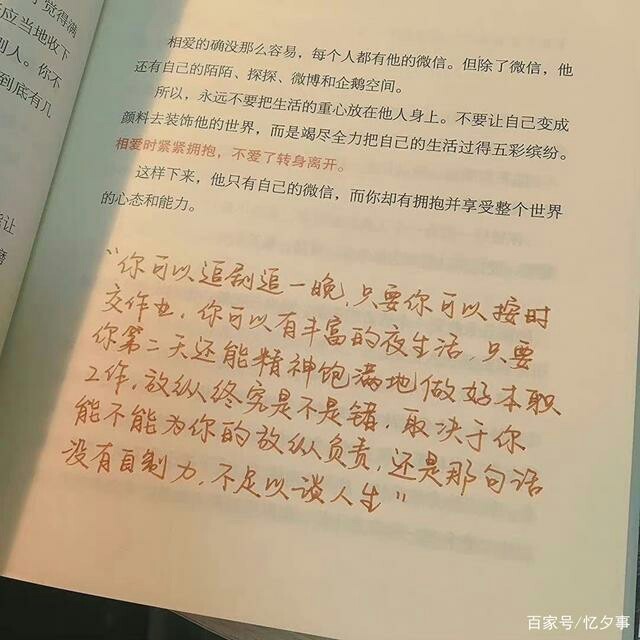 了觉得满
应当地收下
别人。你不
到底有几
能让
磨
相爱的确没那么容易，每个人都有他的微信。但除了微信，他
还有自己的陌陌、探探、微博和企鹅空间。
所以，永远不要把生活的重心放在他人身上。不要让自己变成
颜料去装饰他的世界，而是竭尽全力把自己的生活过得五彩缤纷。
相爱时紧紧拥抱，不爱了转身离开。
这样下来，他只有自己的微信，而你却有拥抱并享受整个世界
的心态和能力。
“你可以追剧追一晚，只要你可以按时
交作业，你可以有丰富的夜生活，只要
你第二天还能精神饱满地做好本职
工作，放纵终究是不是错，取决于你
能不能为你的放纵负责，还是那句话
没有自制力，不足以谈人生”
百家号/忆夕事